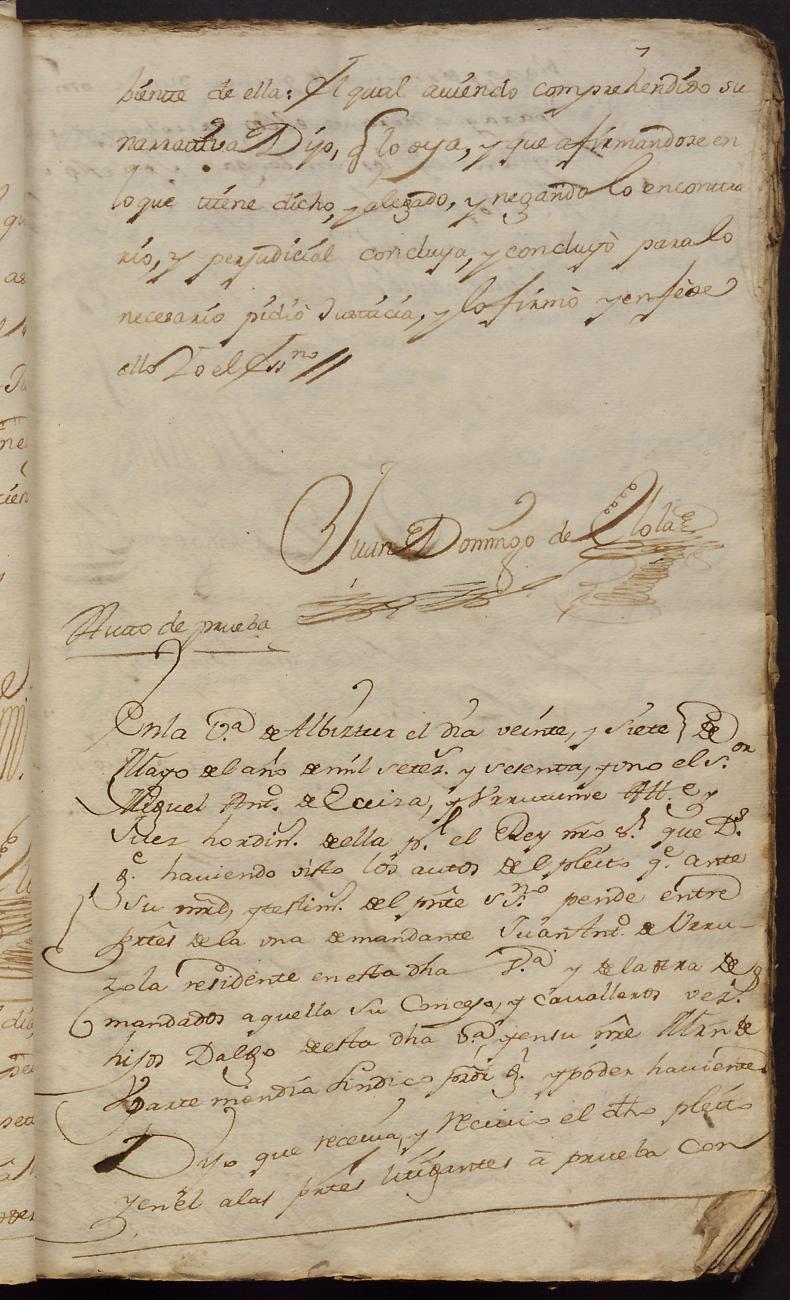 7
biente de ella: El qual auiendo comprehendido su
narrativa Dijo, q̃ lo oya, y que afirmandose en
lo que tiene dicho, y alegado, y negando lo encontra
rio, y perjudicial concluya, y concluyò para lo
necesario pidiò Justicia, y lo firmò y en feè de
ello Yo el Ssno //
Juan Domingo de Olola
Auto de prueba
En la V.a de Albiztur el dia veinte, y siete de
Mayo del año de mil setez.s y sesenta, y uno el S.or Don
Miguel Ant.o de Eceiza, y Urrutume Alc.e y
Juez hordin.o de ella p.r el Rey nro S.r que D.s
g.e haviendo visto los autos del pleito q.e ante
su mrd, y testim.o del pnte ss.no pende entre
prtes de la una demandante Juan Ant.o de Urru-
zola residente en esta dha V.a y de la otra de
mandados aquella su Concejo, y cavalleros vez.s
hijos Dalgo de esta dha V.a y en su nre Mrn de
mendia Sindico prōr g.l y poder haviente
Dijo que recevia, y recivio el dho pleito
y en èl a las prtes litigantes à prueba con